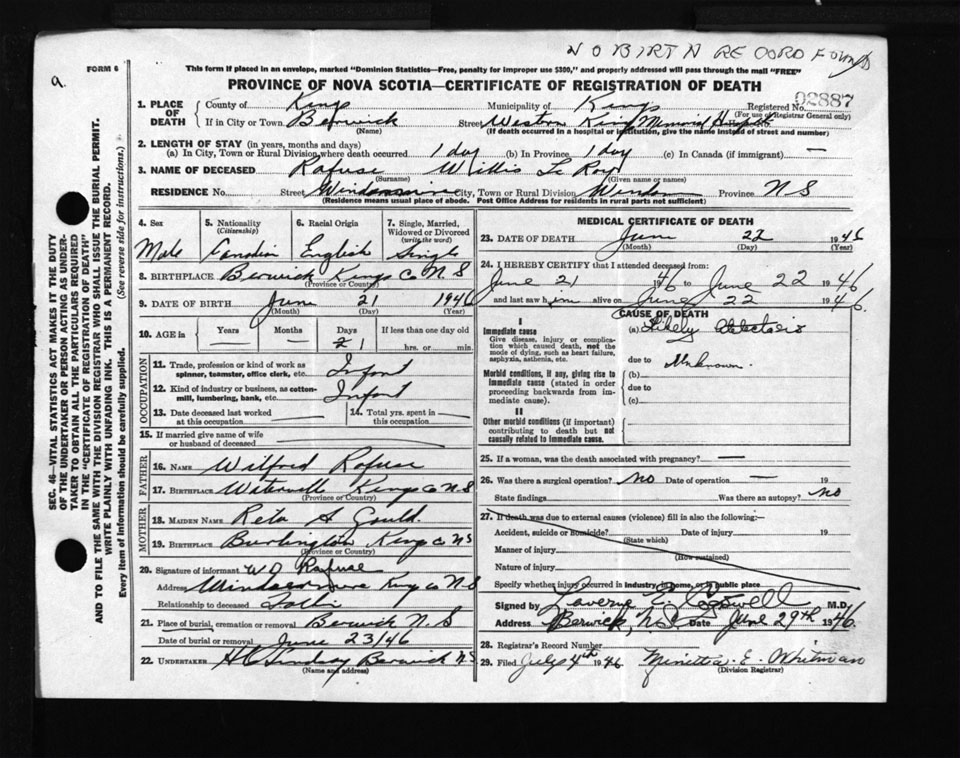 NO BIRTH RECORD FOUND
a
FORM 6
This form if placed in an envelope, marked "Dominion Statistics—Free, penalty for improper use $300," and properly addressed will pass through the mail "FREE"
PROVINCE OF NOVA SCOTIA—CERTIFICATE OF REGISTRATION OF DEATH
SEC. 46—VITAL STATISTICS ACT MAKES IT THE DUTY
OF THE UNDERTAKER OR PERSON ACTING AS UNDER-
TAKER TO OBTAIN ALL THE PARTICULARS REQUIRED
IN THE "CERTIFICATE OF REGISTRATION OF DEATH"
AND TO FILE THE SAME WITH THE DIVISION REGISTRAR WHO SHALL ISSUE THE BURIAL PERMIT.
WRITE PLAINLY WITH UNFADING INK. THIS IS A PERMANENT RECORD.
Every item of information should be carefully supplied. (See reverse side for instructions.)
1. PLACE OF DEATH County of Kings Municipality of Kings Registered No. 02887
(For use of Registrar General only)
If in City or Town Berwick Street Western Kings Memorial Hospital
(Name) (If death occurred in a hospital or institution, give the name instead of street and number)
2. LENGTH OF STAY (in years, months and days)
(a) In City, Town or Rural Division where death occurred 1 day (b) In Province 1 day (c) In Canada (if immigrant) —
3. NAME OF DECEASED Rafuse Willis Le Roy
(Surname) (Given name or names)
RESIDENCE No. Street City, Town or Rural Division Province N S
(Residence means usual place of abode. Post Office Address for residents in rural parts not sufficient)
4. Sex 5. Nationality (Citizenship) 6. Racial Origin 7. Single, Married, Widowed or Divorced (write the word)
Male Canadian English Single
8. BIRTHPLACE Berwick Kings Co N S
(Province or Country)
9. DATE OF BIRTH June 21 1946
(Month) (Day) (Year)
10. AGE in Years Months Days If less than one day old
— — 1 hrs. or min.
OCCUPATION
11. Trade, profession or kind of work as spinner, teamster, office clerk, etc. Infant
12. Kind of industry or business, as cotton-mill, lumbering, bank, etc. Infant
13. Date deceased last worked at this occupation 14. Total yrs. spent in this occupation
15. If married give name of wife or husband of deceased
FATHER
16. NAME Wilford Rafuse
17. BIRTHPLACE Waterville Kings Co N S
(Province or Country)
MOTHER
18. MAIDEN NAME Reta A Gould.
19. BIRTHPLACE Burlington Kings Co NS
(Province or Country)
20. Signature of informant W J Rafuse
Address Kings Co N S
Relationship to deceased Father
21. Place of burial, cremation or removal Berwick N S
Date of burial or removal June 23/46
22. UNDERTAKER H C Lindsay Berwick N S
(Name and address)
MEDICAL CERTIFICATE OF DEATH
23. DATE OF DEATH June 22 1946
(Month) (Day) (Year)
24. I HEREBY CERTIFY that I attended deceased from:
June 21 1946 to June 22 1946
and last saw him alive on June 22 1946.
CAUSE OF DEATH
I
Immediate cause
Give disease, injury or complication which caused death, not the mode of dying, such as heart failure, asphyxia, asthenia, etc.
(a) Likely atelectasis
due to Unknown.
Morbid conditions, if any, giving rise to immediate cause (stated in order proceeding backwards from immediate cause).
(b)
due to
(c)
II
Other morbid conditions (if important) contributing to death but not causally related to immediate cause.
25. If a woman, was the death associated with pregnancy? —
26. Was there a surgical operation? No Date of operation — 19
State findings Was there an autopsy? No
27. If death was due to external causes (violence) fill in also the following:—
Accident, suicide or homicide? Date of injury 19
(State which)
Manner of injury
(How sustained)
Nature of injury
Specify whether injury occurred in industry, in home, or in public place
Signed by Laverne E. Cogswell M.D.
Address Berwick, N.S. Date June 29th 1946.
28. Registrar's Record Number
29. Filed July 4th 1946 Minetta. E. Whitman
(Division Registrar)